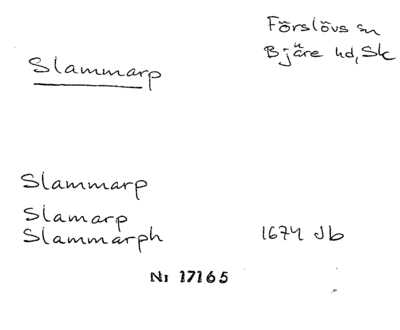 Förslövs sn
Bjäre hd, Sk
Slammarp
Slammarp
Slamarp
Slammarph 1674 Jb
Nr 17165